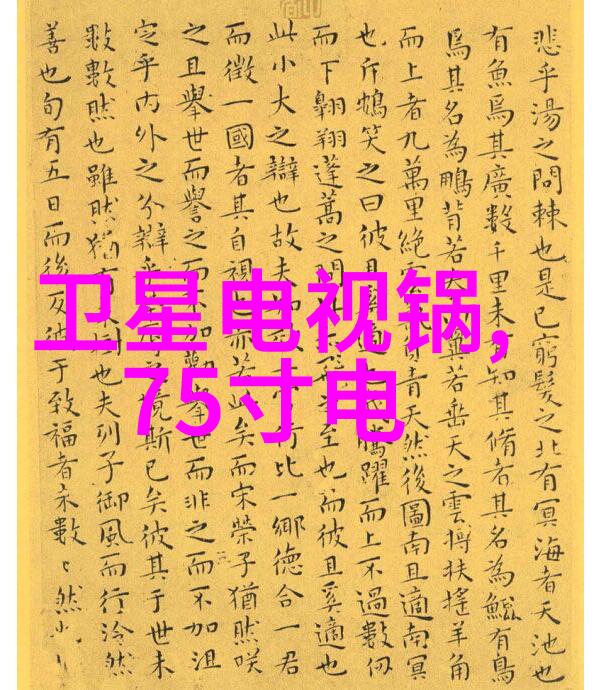 卫星电视锅,
75寸电
悲乎湯之問棘也是已窮髮之北有冥海者天池也
有魚焉其廣數千里未有知其脩者其名為鯤有鳥
焉其名為鵬背若太山翼若垂天之雲摶扶搖羊角
而上者九萬里絕青天然後圖南且適南冥
也斥鴳笑之曰彼且奚適騰躍而上不過數仞
而下翱翔蓬蒿之間至也而彼且奚適也
此小大之辯也故夫行比一鄉德合一君
而徵一國者其自視也亦若此矣而宋榮子猶然咲
之且舉世而譽之而不加勸舉世而非之而不加沮
定乎內外之分辯乎境斯已矣彼其于世未
數數然也雖然猶有也夫列子御風而行泠然
善也旬有五日而後反彼于致福者未數〻然也